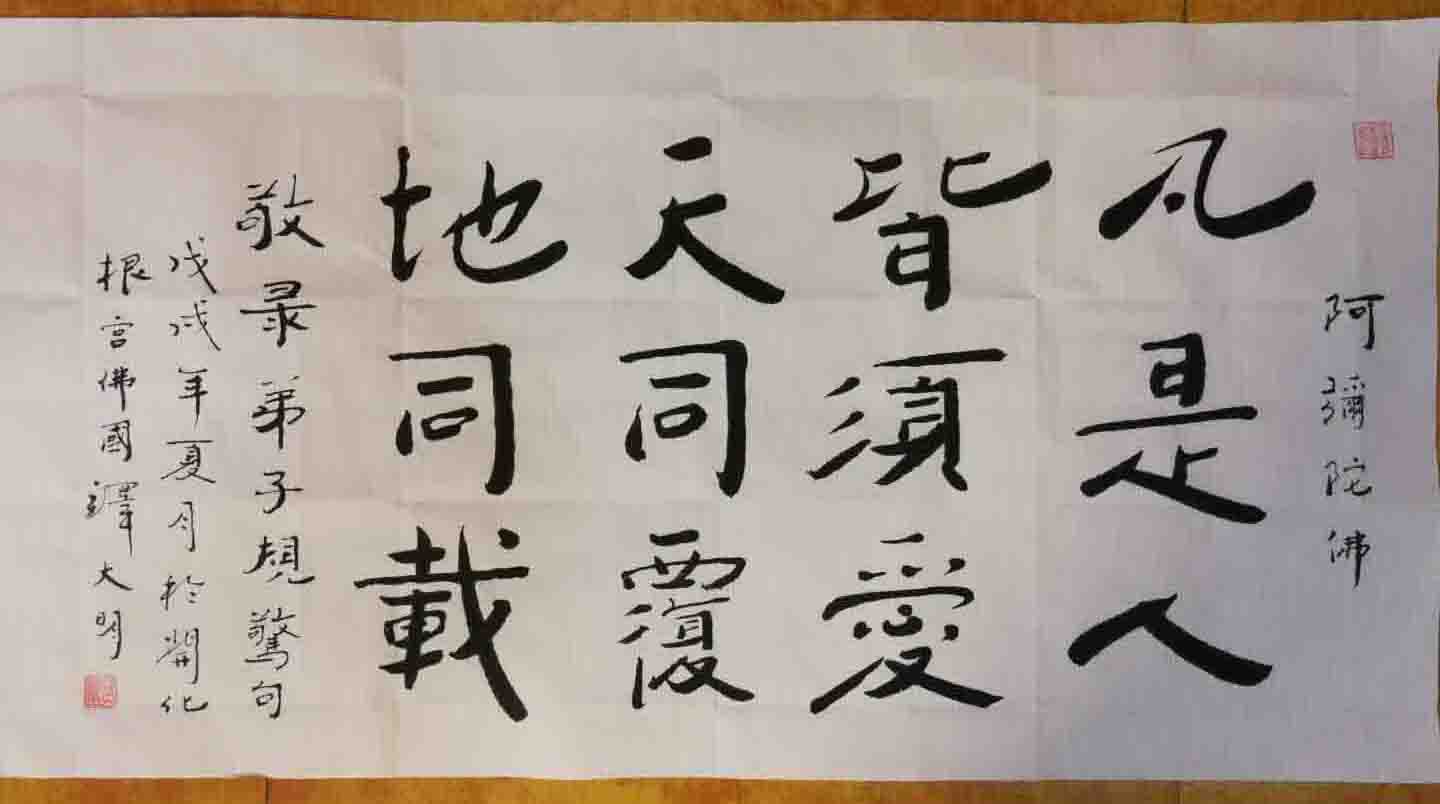 阿彌陀佛
凡是人
皆須愛
天同覆
地同載
敬录弟子規驚句
戊戌年夏月於開化
根宫佛國釋大明